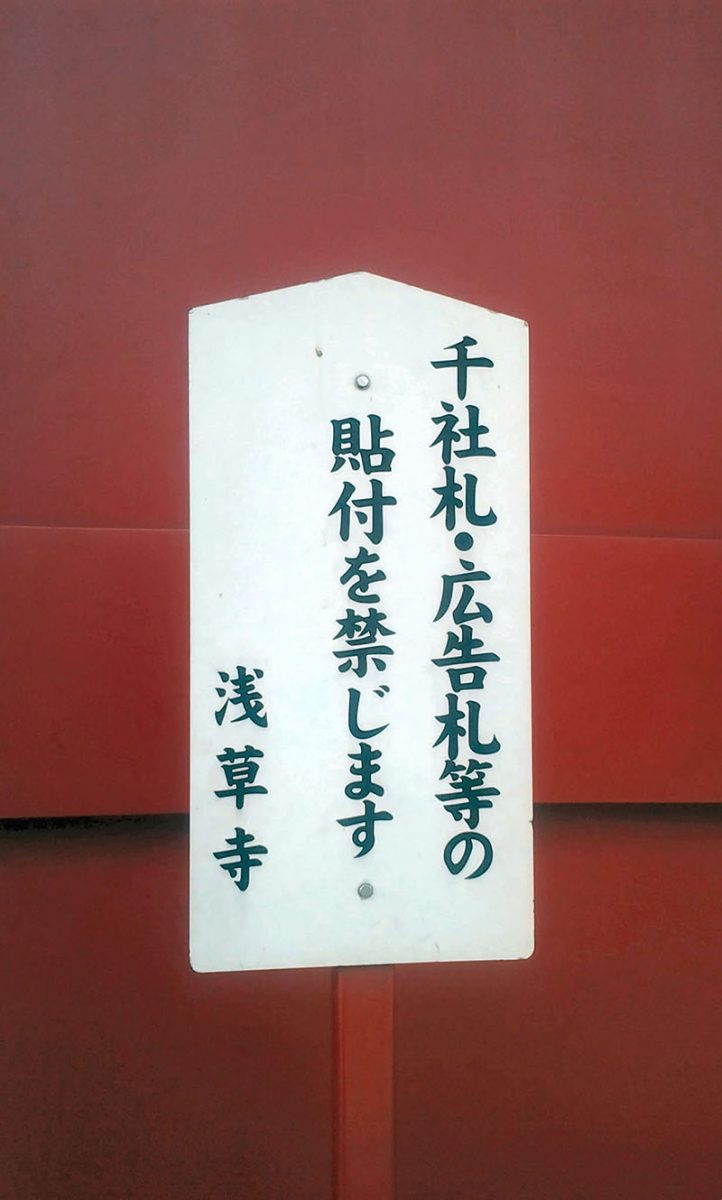 千社札・広告札等の
貼付を禁じます
浅草寺